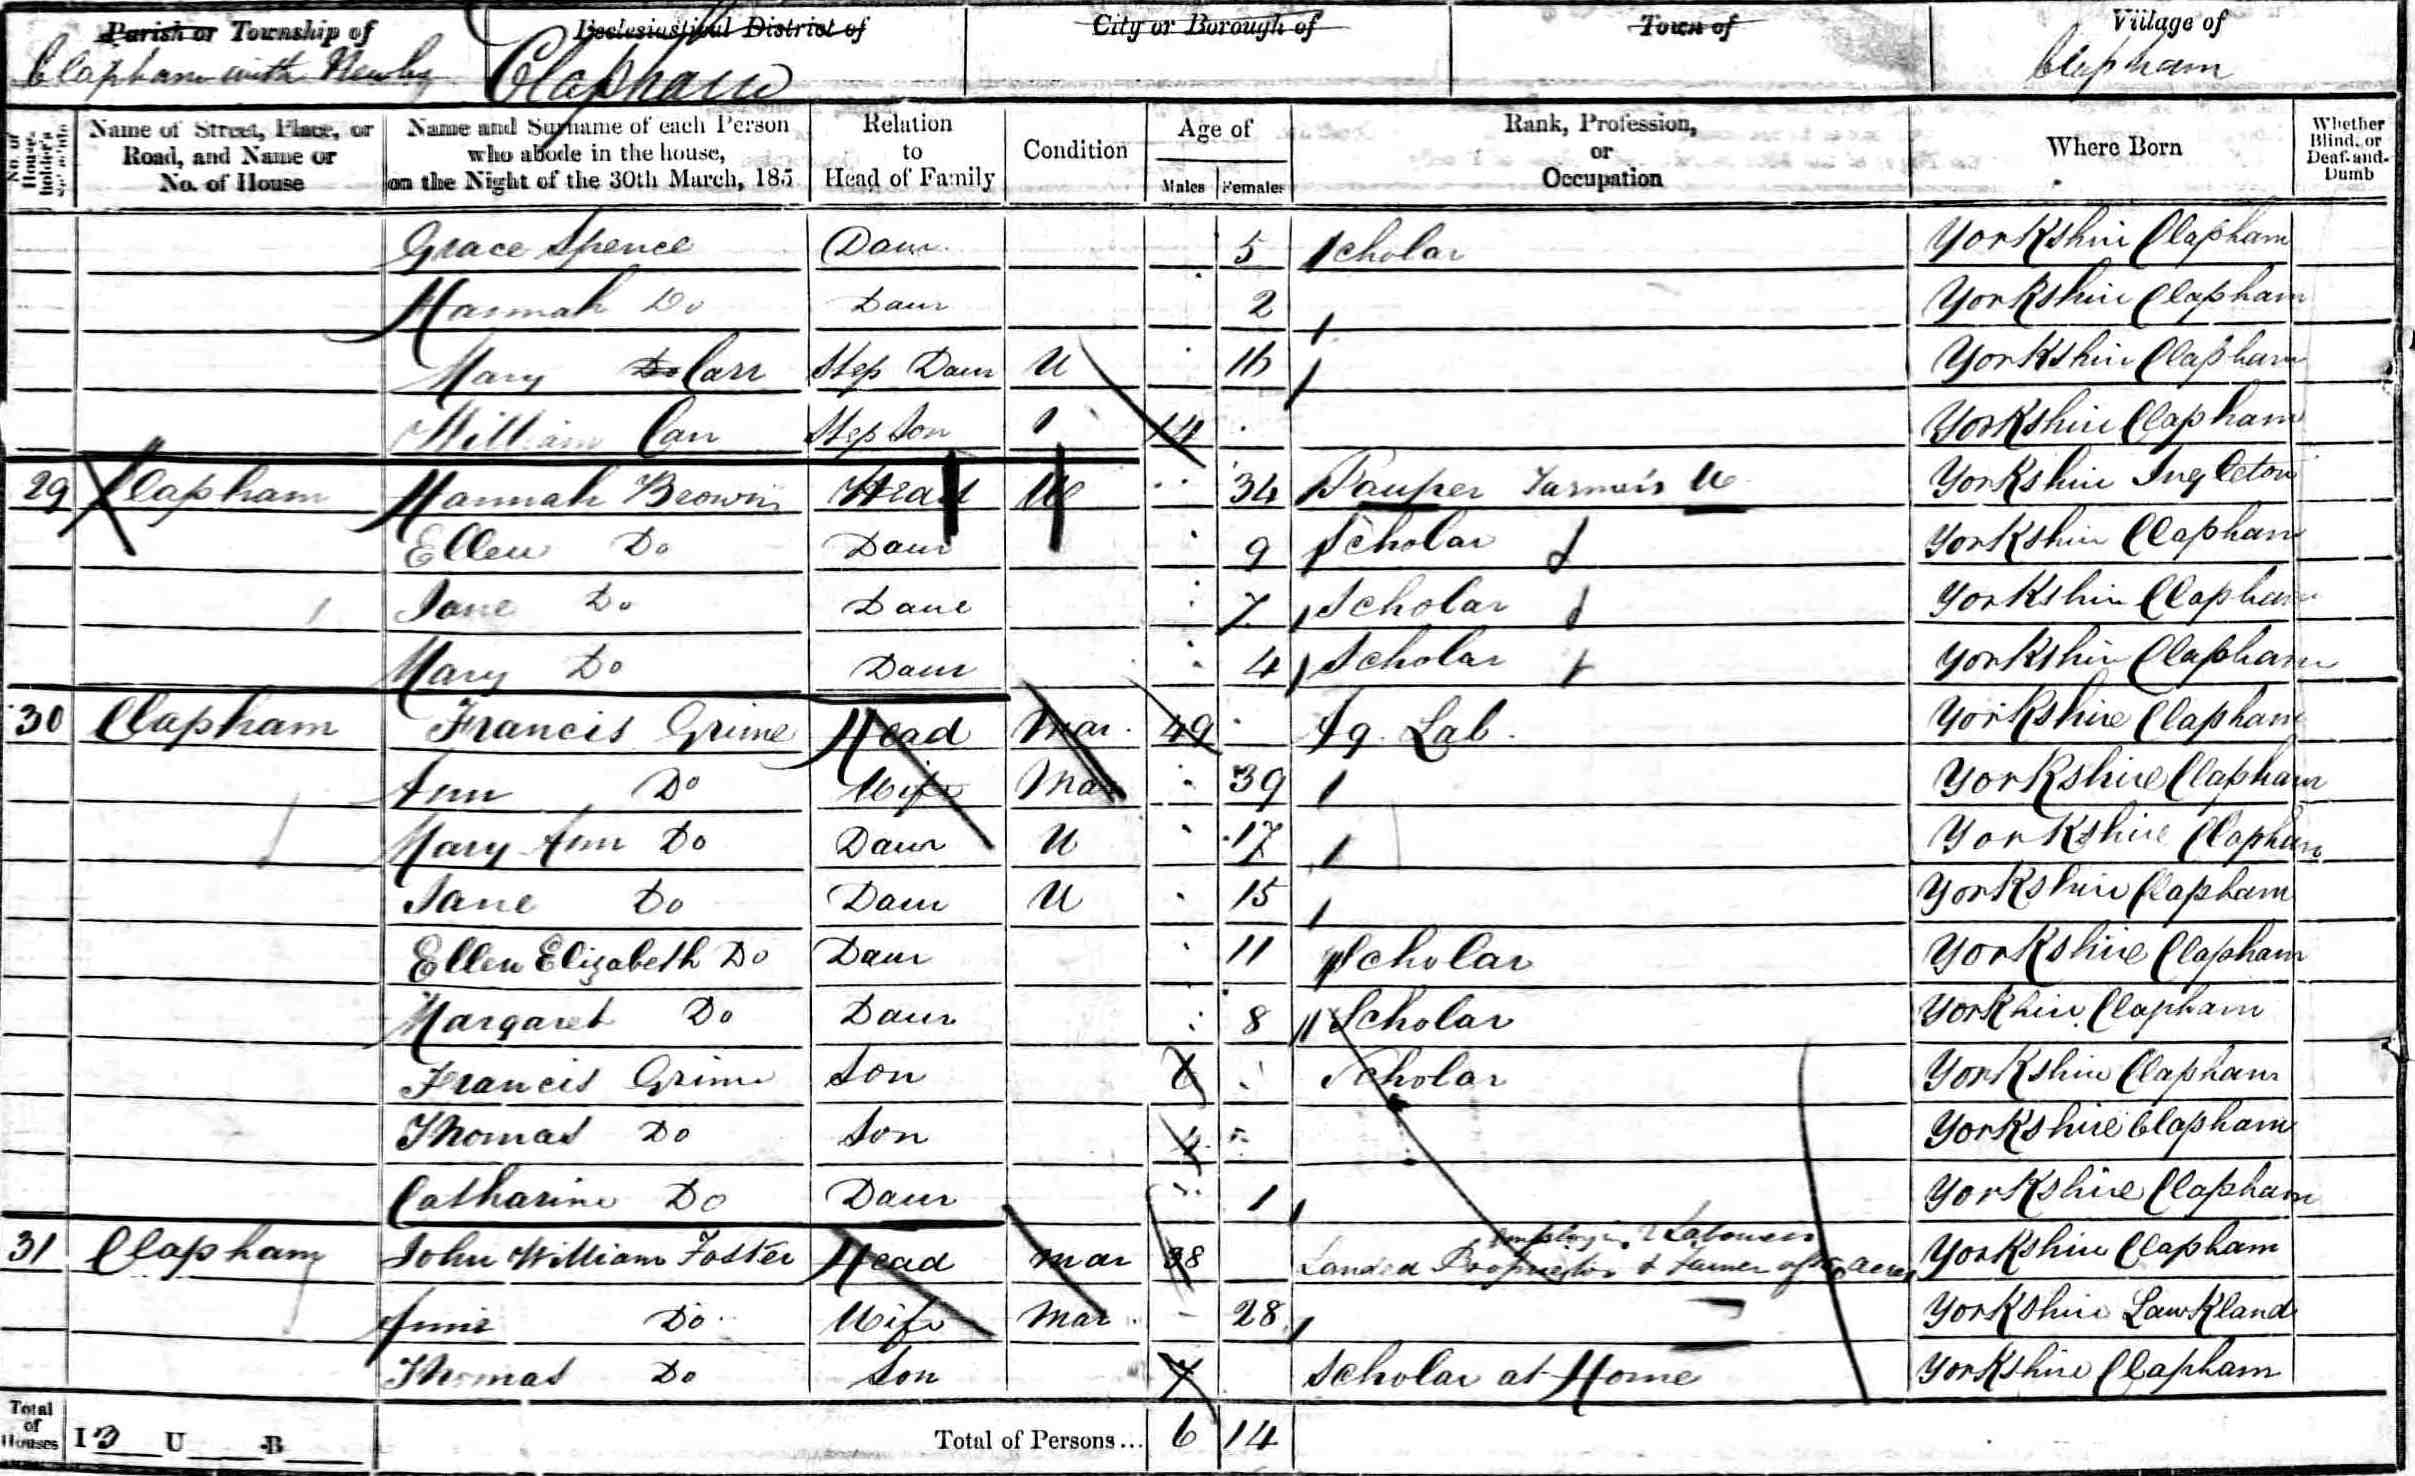 Parish or Township of Ecclesiastical District of City or Borough of Town of Village of
Clapham with Newby Clapham Clapham
No. of House-holder's Name of Street, Place, or Road, and Name or No. of House Name and Surname of each Person who abode in the house, on the Night of the 30th March, 185 Relation to Head of Family Condition Age of Males Females Rank, Profession, or Occupation Where Born Whether Blind, or Deaf-and-Dumb
Grace Spence Daur 5 Scholar Yorkshire Clapham
Hannah Do Daur 2 Yorkshire Clapham
Mary Do Carr Step Daur U 16 Yorkshire Clapham
William Carr Step Son 14 Yorkshire Clapham
29 Clapham Hannah Brown Head W 34 Pauper Farmer's W Yorkshire Ingleton
Ellen Do Daur 9 Scholar Yorkshire Clapham
Jane Do Daur 7 Scholar Yorkshire Clapham
Mary Do Daur 4 Scholar Yorkshire Clapham
30 Clapham Francis Grime Head Mar. 49 Ag. Lab. Yorkshire Clapham
Ann Do Wife Mar 39 Yorkshire Clapham
Mary Ann Do Daur U 17 Yorkshire Clapham
Jane Do Daur U 15 Yorkshire Clapham
Ellen Elizabeth Do Daur 11 Scholar Yorkshire Clapham
Margaret Do Daur 8 Scholar Yorkshire Clapham
Francis Grime Son 6 Scholar Yorkshire Clapham
Thomas Do Son 4 Yorkshire Clapham
Catharine Do Daur 1 Yorkshire Clapham
employing 2 Labourers
31 Clapham John William Foster Head Mar 38 Landed Proprietor & Farmer of acres Yorkshire Clapham
Annie Do Wife Mar. 28 Yorkshire Lawkland
Thomas Do Son 7 Scholar at Home Yorkshire Clapham
Total of Houses I 3 U B Total of Persons... 6 14